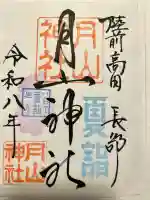 陸前高田 長部
月山神社
月山神社
夏詣
令和八年
月山神社